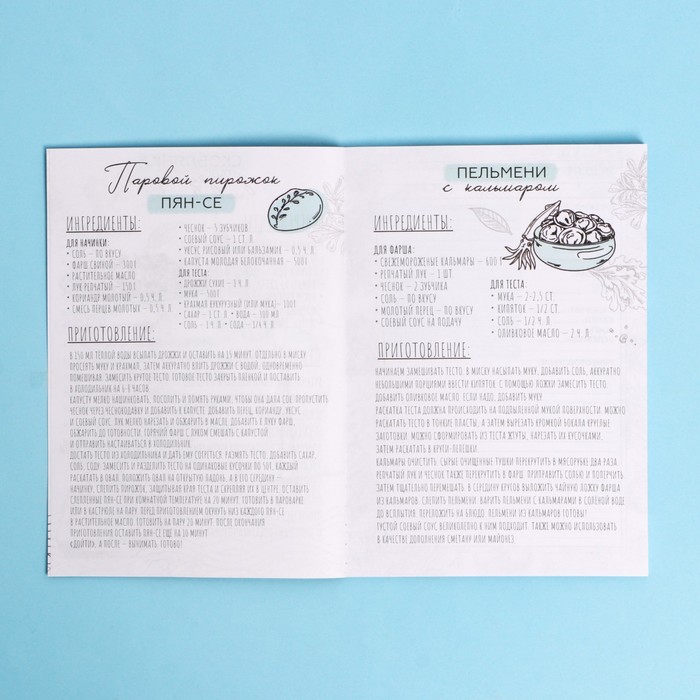 Паровой пирожок
ПЯН-СЕ
ИНГРЕДИЕНТЫ:
ДЛЯ НАЧИНКИ:
• СОЛЬ – ПО ВКУСУ
• ФАРШ СВИНОЙ – 300 Г
• РАСТИТЕЛЬНОЕ МАСЛО
• ЛУК РЕПЧАТЫЙ – 150 Г
• КОРИАНДР МОЛОТЫЙ – 0,5 Ч. Л.
• СМЕСЬ ПЕРЦЕВ МОЛОТЫХ – 0,5 Ч. Л.
• ЧЕСНОК – 5 ЗУБЧИКОВ
• СОЕВЫЙ СОУС – 1 СТ. Л.
• УКСУС РИСОВЫЙ ИЛИ БАЛЬЗАМИК – 0,5 Ч. Л.
• КАПУСТА МОЛОДАЯ БЕЛОКОЧАННАЯ – 300 Г
ДЛЯ ТЕСТА:
• ДРОЖЖИ СУХИЕ – 1 Ч. Л.
• МУКА – 300 Г
• КРАХМАЛ КУКУРУЗНЫЙ (ИЛИ МУКА) – 100 Г
• САХАР – 1 СТ. Л. • ВОДА – 100 МЛ
• СОЛЬ – 1 Ч. Л. • СОДА – 1/4 Ч. Л.
ПРИГОТОВЛЕНИЕ:
В 150 МЛ ТЕПЛОЙ ВОДЫ ВСЫПАТЬ ДРОЖЖИ И ОСТАВИТЬ НА 15 МИНУТ. ОТДЕЛЬНО В МИСКУ
ПРОСЕЯТЬ МУКУ И КРАХМАЛ, ЗАТЕМ АККУРАТНО ВЛИТЬ ДРОЖЖИ С ВОДОЙ, ОДНОВРЕМЕННО
ПОМЕШИВАЯ. ЗАМЕСИТЬ КРУТОЕ ТЕСТО. ГОТОВОЕ ТЕСТО ЗАКРЫТЬ ПЛЕНКОЙ И ПОСТАВИТЬ
В ХОЛОДИЛЬНИК НА 6-8 ЧАСОВ.
КАПУСТУ МЕЛКО НАШИНКОВАТЬ, ПОСОЛИТЬ И ПОМЯТЬ РУКАМИ, ЧТОБЫ ОНА ДАЛА СОК. ПРОПУСТИТЬ
ЧЕСНОК ЧЕРЕЗ ЧЕСНОКОДАВКУ И ДОБАВИТЬ К КАПУСТЕ. ДОБАВИТЬ ПЕРЕЦ, КОРИАНДР, УКСУС
И СОЕВЫЙ СОУС. ЛУК МЕЛКО НАРЕЗАТЬ И ОБЖАРИТЬ В МАСЛЕ. ДОБАВИТЬ К ЛУКУ ФАРШ,
ОБЖАРИТЬ ДО ГОТОВНОСТИ. ГОРЯЧИЙ ФАРШ С ЛУКОМ СМЕШАТЬ С КАПУСТОЙ
И ОТПРАВИТЬ НАСТАИВАТЬСЯ В ХОЛОДИЛЬНИК.
ДОСТАТЬ ТЕСТО ИЗ ХОЛОДИЛЬНИКА И ДАТЬ ЕМУ СОГРЕТЬСЯ. РАЗМЯТЬ ТЕСТО, ДОБАВИТЬ САХАР,
СОЛЬ, СОДУ, ЗАМЕСИТЬ И РАЗДЕЛИТЬ ТЕСТО НА ОДИНАКОВЫЕ КУСОЧКИ ПО 50 Г. КАЖДЫЙ
РАСКАТАТЬ В ОВАЛ. ПОЛОЖИТЬ ОВАЛ НА ОТКРЫТУЮ ЛАДОНЬ, А В ЕГО СЕРЕДИНУ –
НАЧИНКУ, СЛЕПИТЬ ПИРОЖОК, ЗАЩИПЫВАЯ КРАЯ ТЕСТА И СКРЕПЛЯЯ ИХ В ЦЕНТРЕ. ОСТАВИТЬ
СЛЕПЛЕННЫЕ ПЯН-СЕ ПРИ КОМНАТНОЙ ТЕМПЕРАТУРЕ НА 20 МИНУТ. ГОТОВИТЬ В ПАРОВАРКЕ
ИЛИ В КАСТРЮЛЕ НА ПАРУ. ПЕРЕД ПРИГОТОВЛЕНИЕМ ОКУНУТЬ НИЗ КАЖДОГО ПЯН-СЕ
В РАСТИТЕЛЬНОЕ МАСЛО. ГОТОВИТЬ НА ПАРУ 20 МИНУТ. ПОСЛЕ ОКОНЧАНИЯ
ПРИГОТОВЛЕНИЯ ОСТАВИТЬ ПЯН-СЕ ЕЩЕ НА 10 МИНУТ
«ДОЙТИ», А ПОСЛЕ – ВЫНИМАТЬ. ГОТОВО!
ПЕЛЬМЕНИ
с кальмаром
ИНГРЕДИЕНТЫ:
ДЛЯ ФАРША:
• СВЕЖЕМОРОЖЕНЫЕ КАЛЬМАРЫ – 600 Г
• РЕПЧАТЫЙ ЛУК – 1 ШТ
• ЧЕСНОК – 2 ЗУБЧИКА
• СОЛЬ – ПО ВКУСУ
• МОЛОТЫЙ ПЕРЕЦ – ПО ВКУСУ
• СОЕВЫЙ СОУС НА ПОДАЧУ
ДЛЯ ТЕСТА:
• МУКА – 2-2,5 СТ.
• КИПЯТОК – 1/2 СТ.
• СОЛЬ – 1/2 Ч. Л.
• ОЛИВКОВОЕ МАСЛО – 2 Ч. Л.
ПРИГОТОВЛЕНИЕ:
НАЧИНАЕМ ЗАМЕШИВАТЬ ТЕСТО: В МИСКУ НАСЫПАТЬ МУКУ, ДОБАВИТЬ СОЛЬ, АККУРАТНО
НЕБОЛЬШИМИ ПОРЦИЯМИ ВВЕСТИ КИПЯТОК. С ПОМОЩЬЮ ЛОЖКИ ЗАМЕСИТЬ ТЕСТО.
ДОБАВИТЬ ОЛИВКОВОЕ МАСЛО, ЕСЛИ НАДО, ДОБАВИТЬ МУКУ.
РАСКАТКА ТЕСТА ДОЛЖНА ПРОИСХОДИТЬ НА ПОДПЫЛЕННОЙ МУКОЙ ПОВЕРХНОСТИ. МОЖНО
РАСКАТАТЬ ТЕСТО В ТОНКИЕ ПЛАСТЫ, А ЗАТЕМ ВЫРЕЗАТЬ КРОМКОЙ БОКАЛА КРУГЛЫЕ
ЗАГОТОВКИ. МОЖНО СФОРМИРОВАТЬ ИЗ ТЕСТА ЖГУТЫ, НАРЕЗАТЬ ИХ КУСОЧКАМИ,
ЗАТЕМ РАСКАТАТЬ В КРУГИ-ЛЕПЕШКИ.
КАЛЬМАРЫ ОЧИСТИТЬ. СЫРЫЕ ОЧИЩЕННЫЕ ТУШКИ ПЕРЕКРУТИТЬ В МЯСОРУБКЕ ДВА РАЗА.
РЕПЧАТЫЙ ЛУК И ЧЕСНОК ТАКЖЕ ПЕРЕКРУТИТЬ В ФАРШ. ПРИПРАВИТЬ СОЛЬЮ И ПОПЕРЧИТЬ,
ЗАТЕМ ТЩАТЕЛЬНО ПЕРЕМЕШАТЬ. В СЕРЕДИНУ КРУГОВ ВЫЛОЖИТЬ ЧАЙНУЮ ЛОЖКУ ФАРША
ИЗ КАЛЬМАРОВ, СЛЕПИТЬ ПЕЛЬМЕНИ. ВАРИТЬ ПЕЛЬМЕНИ С КАЛЬМАРАМИ В СОЛЕНОЙ ВОДЕ
ДО ВСПЛЫТИЯ. ПЕРЕЛОЖИТЬ НА БЛЮДО. ПЕЛЬМЕНИ ИЗ КАЛЬМАРОВ ГОТОВЫ!
ГУСТОЙ СОЕВЫЙ СОУС ВЕЛИКОЛЕПНО К НИМ ПОДХОДИТ. ТАКЖЕ МОЖНО ИСПОЛЬЗОВАТЬ
В КАЧЕСТВЕ ДОПОЛНЕНИЯ СМЕТАНУ ИЛИ МАЙОНЕЗ.